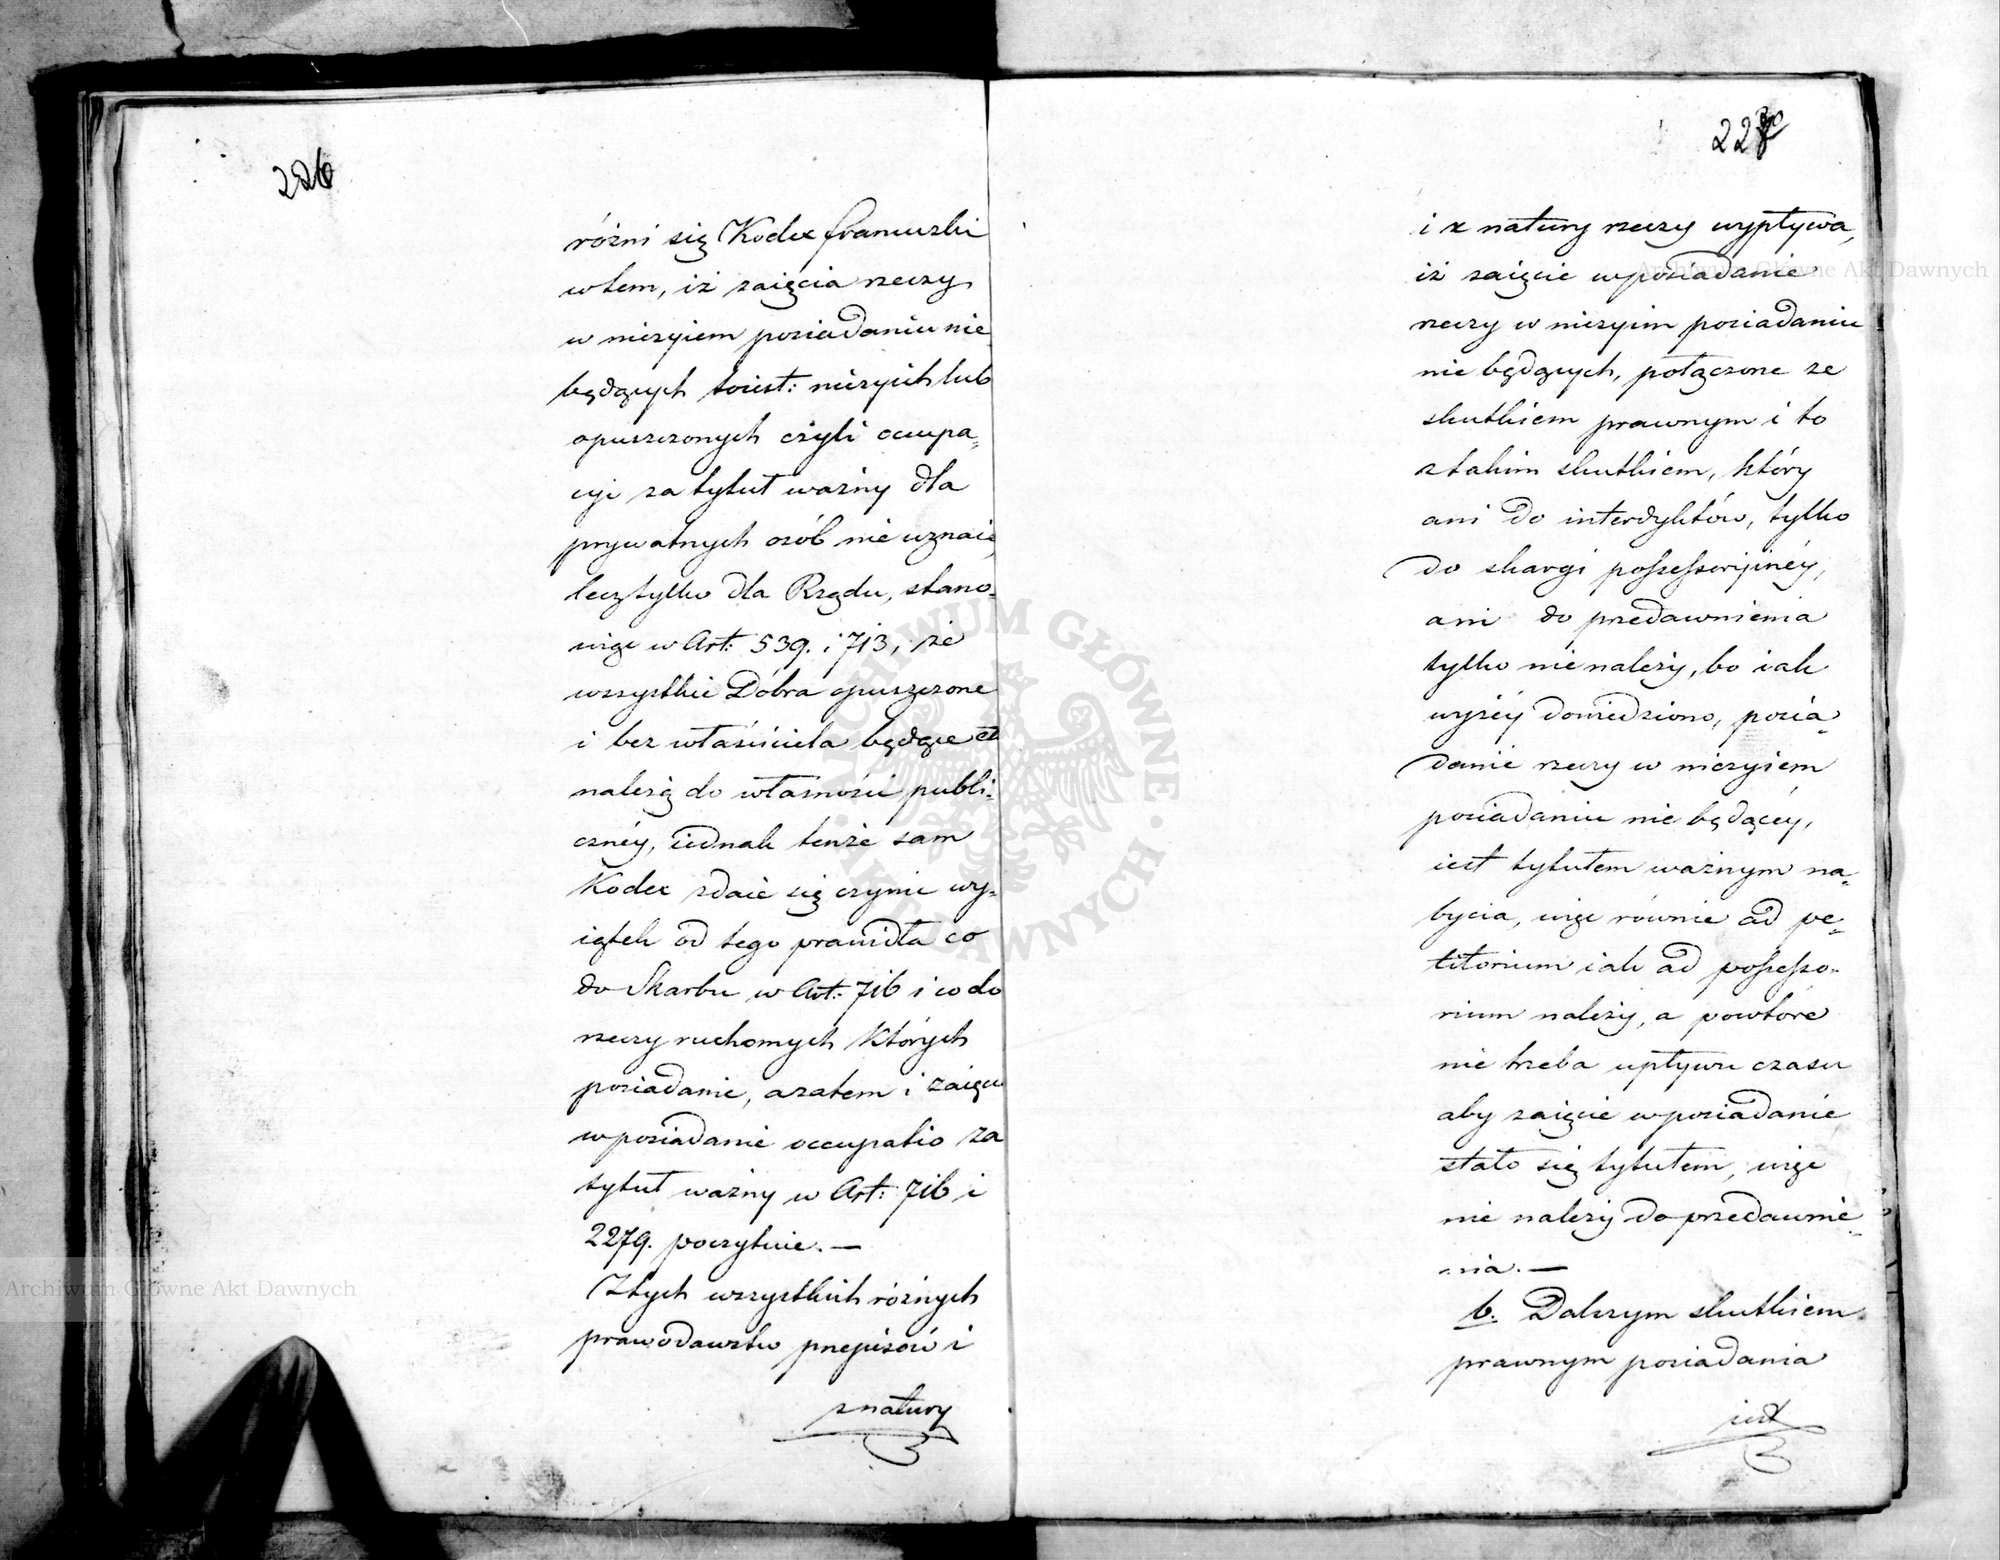 226
różni się Kodex francuzki
w tem, iż zaięcia rzeczy
w niczyiem posiadaniu nie
będących toiest: niczyich lub
opuszczonych czyli occupa=
cyi za tytuł ważny dla
prywatnych osób nie uznaie,
lecz tylko dla Rządu, stano=
wiąc w Art: 539. i 713, że
wszystkie Dobra opuszczone
i bez właściciela będące
należą do własności publi=
cznéy, iednak tenże sam
Kodex zdaie się czynic wy=
iątek od tego prawidła co
do Skarbu w Art: 716 i co do
rzeczy ruchomych których
posiadanie, azatem i zaięcie
w posiadanie occupatio za
tytuł ważny w Art: 716 i
2279. poczytuie. —
Z tych wszystkich różnych
prawodawstw przepisów i
z natury
i z natury rzeczy wypływa,
iż zaięcie w posiadanie
rzeczy w niczyim posiadaniu
nie będących, połączone ze
skutkiem prawnym i to
z takim skutkiem, który
ani do interdyktów, tylko
do skargi possessoryinéy,
ani do przedawnienia
tylko nie należy, bo iak
wyżéy dowiedziono, posia=
danie rzeczy w niczyiem
posiadaniu nie będącéy,
iest tytułem ważnym na=
bycia, więc równie ad pe=
titorium iak ad possesso=
rium należy, a powtóre
nie trzeba upływu czasu
aby zaięcie w posiadanie
stało się tytułem, więc
nie należy do przedawnie=
nia. —
b. Dalszym skutkiem
prawnym posiadania
iest
Archiwum Główne Akt Dawnych
Archiwum Główne Akt Dawnych
ARCHIWUM GŁÓWNE · AKT DAWNYCH ·